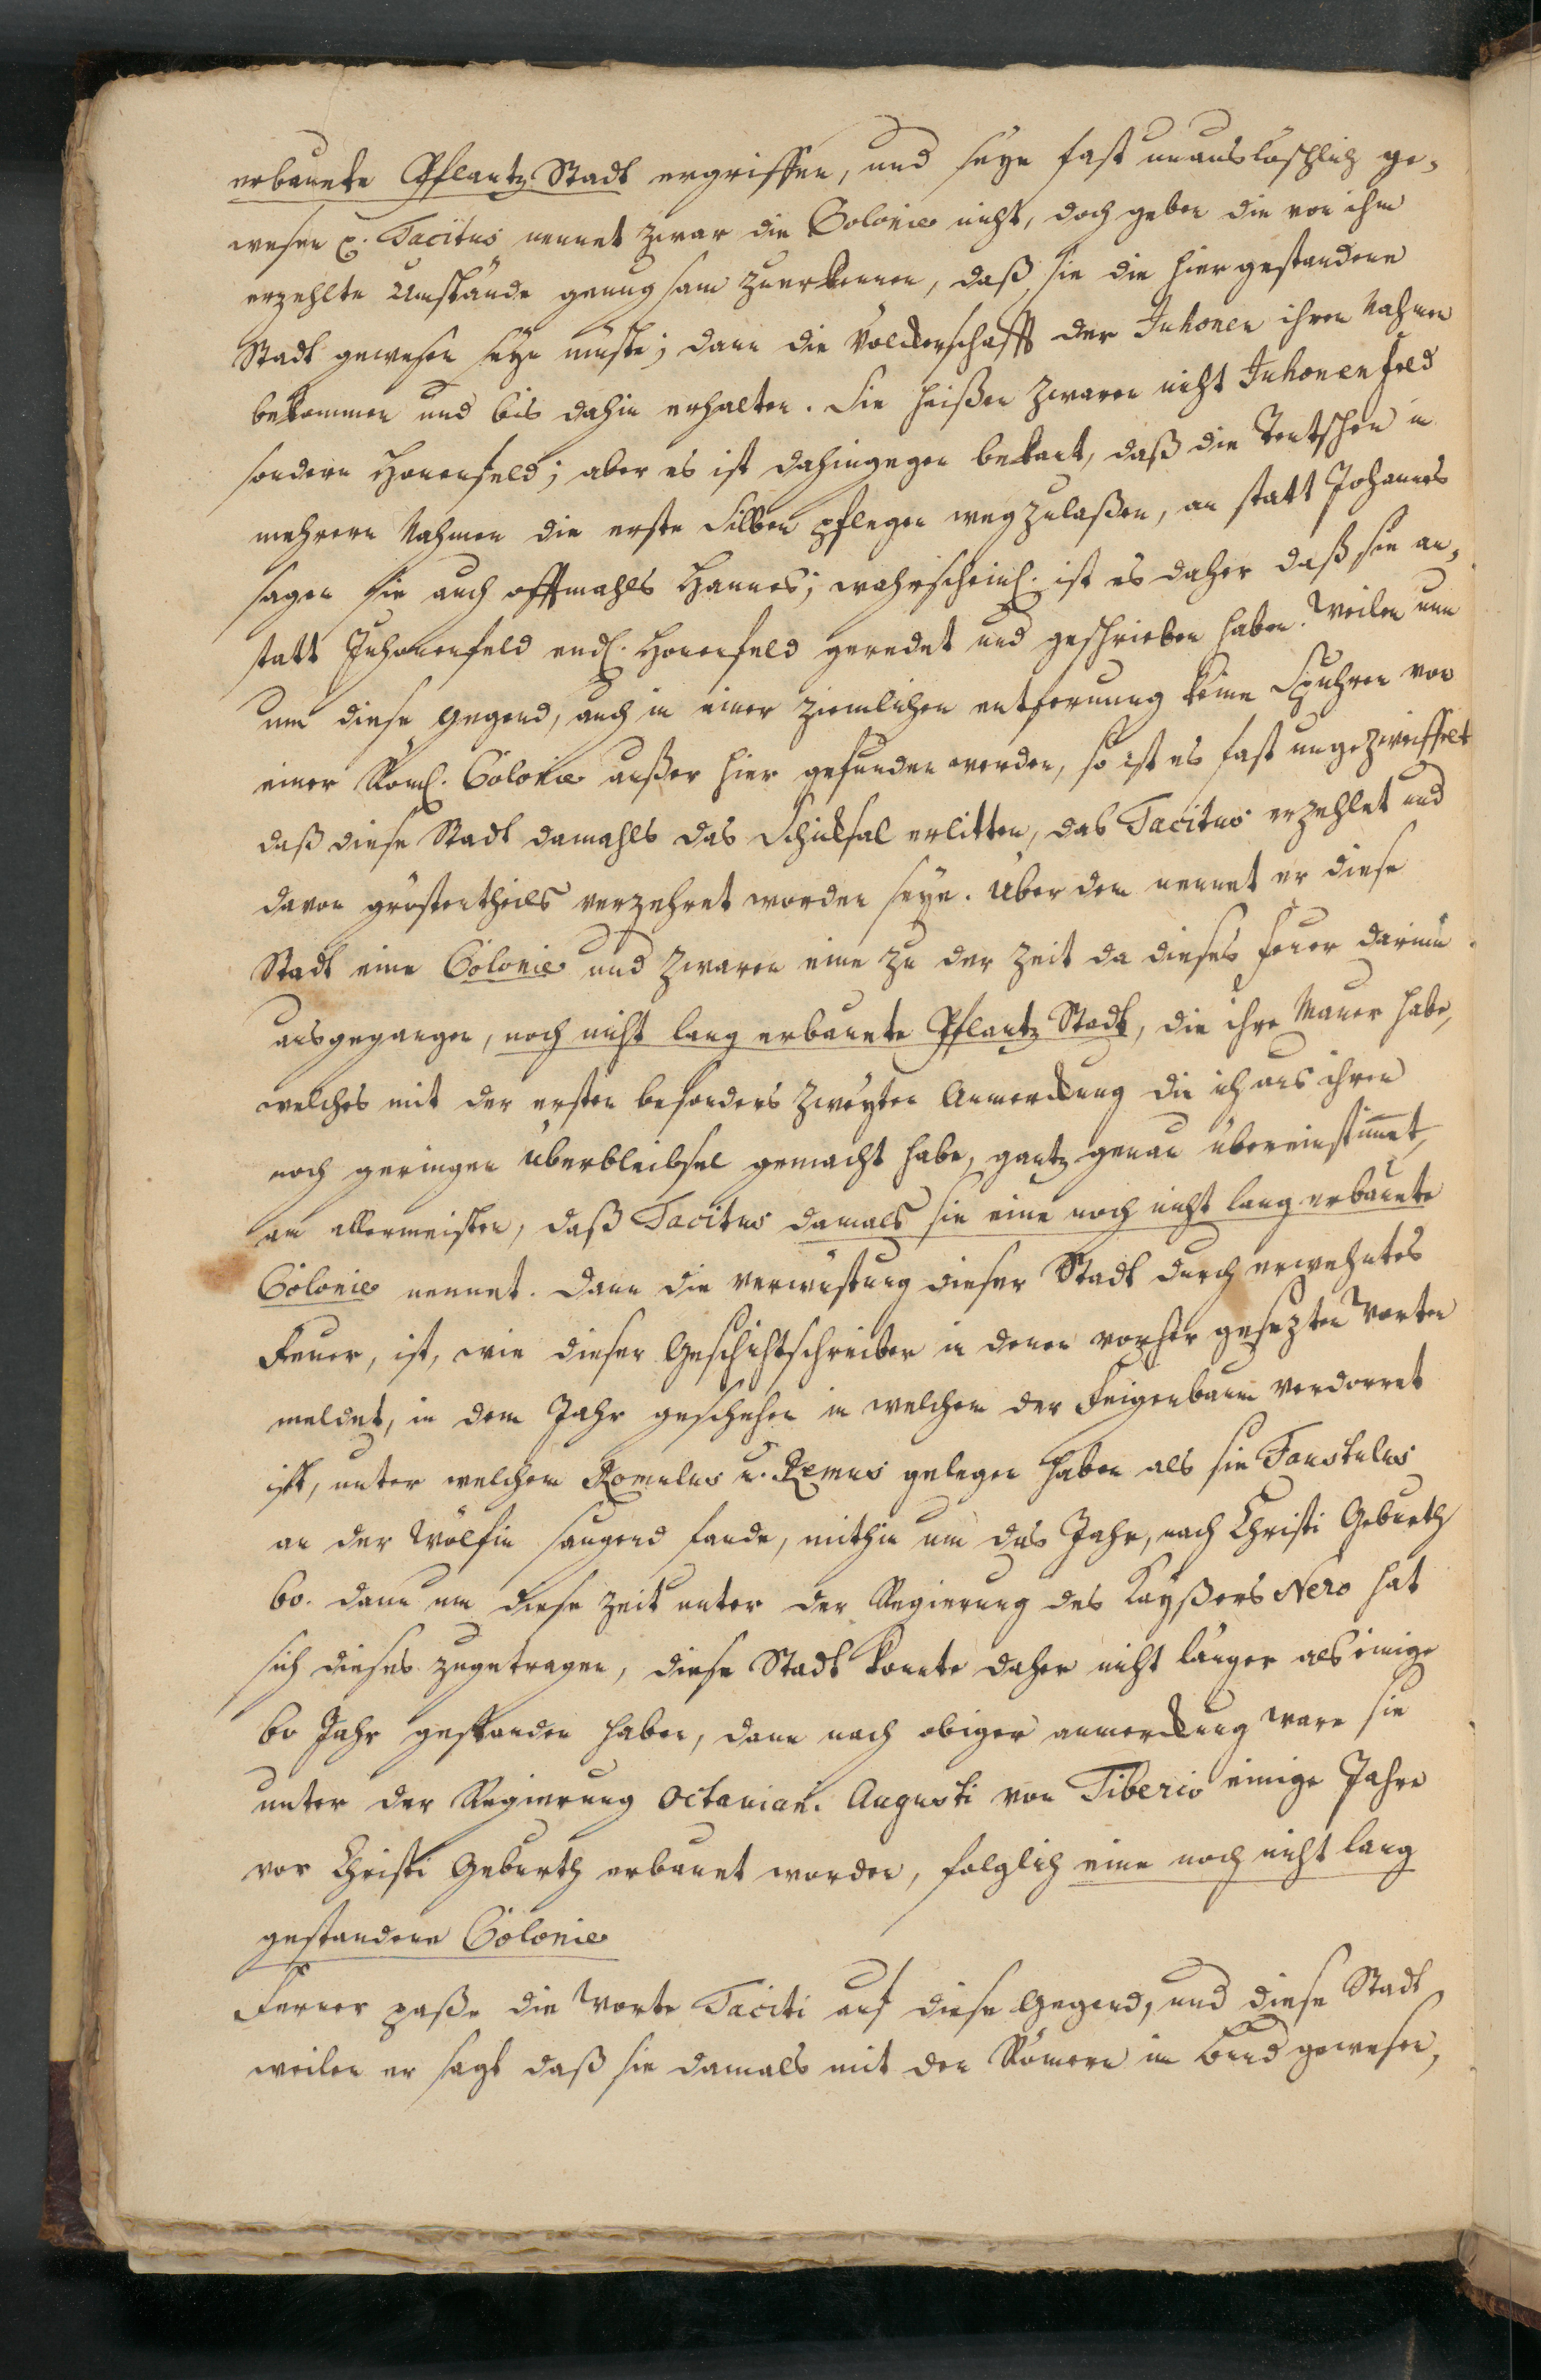 erbauete Pflantz Stadt ergriffen, und seye fast unauslöschlich ge-
wesen p. Tacitus nennet zwar die Colonie nicht, doch geben die von ihm
erzehlte Umstände genugsam zuerkennen, daß sie die hier gestandene
Stadt gewesen seye müste; dann die Völckerschafft der Juhonen ihren Nahmen
bekommen und bis dahin erhalten. Sie heißen zwaren nicht Juhonenfeld
sondern Honenfeld; aber es ist dahingegen bekant, daß die Teutschen in
mehrern Nahmen die erste Silben pflegen wegzulaßen, an statt Johannes
sagen sie auch offtmahls Hannes; wahrscheinl. ist es daher daß sie an-
statt Juhonenfeld endl. Honenfeld geredet und geschrieben haben. Weilen nun
um diese Gegend, auch in einer ziemlichen entfernung keine Spuhren von
einer Röml. Colonie außer hier gefunden werden, so ist es fast ungezweiffelt
daß diese Stadt damahls das Schicksal erlitten, das Tacitus erzehlet und
davon gröstentheils verzehret worden seye. Über dem nennet er diese
Stadt eine Colonie und zwaren eine zu der Zeit da dieses Feuer darinn
ausgegangen, noch nicht lang erbauete Pflantz Stadt, die ihre Mauer habe,
welches mit der ersten besonders zweyten Anmerckung die ich aus ihren
noch geringen Überbleibsel gemacht habe, gantz genau übereinstim̅et,
am allermeisten, daß Tacitus damals sie eine noch nicht lang erbauete
Colonie nennet. Dann die verwüstung dieser Stadt durch erwehntes
Feuer, ist, wie dieser Geschichtschreiber in denen vorher gesezten Worten
meldet, in dem Jahr geschehen in welchem der Feigenbaum verdorret
ist, unter welchem Romulus u. Remus gelegen haben als sie Faustulus
an der Wölfin saugend fande, mithin um das Jahr, nach Christi Geburth
60. dann um diese Zeit unter der Regierung des Kayßers Nero hat
sich dieses zugetragen, diese Stadt konnte daher nicht länger als einige
60 Jahr gestanden haben, dann nach obiger anmerckung ware sie
unter der Regierung Octavian. Augusti von Tiberio einige Jahre
vor Christi Geburth erbauet worden, folglich eine noch nicht lang
gestandene Colonie
Ferner paße die Worte Taciti auf diese Gegend, und diese Stadt
weilen er sagt daß sie damals mit den Römern im Bund gewesen,